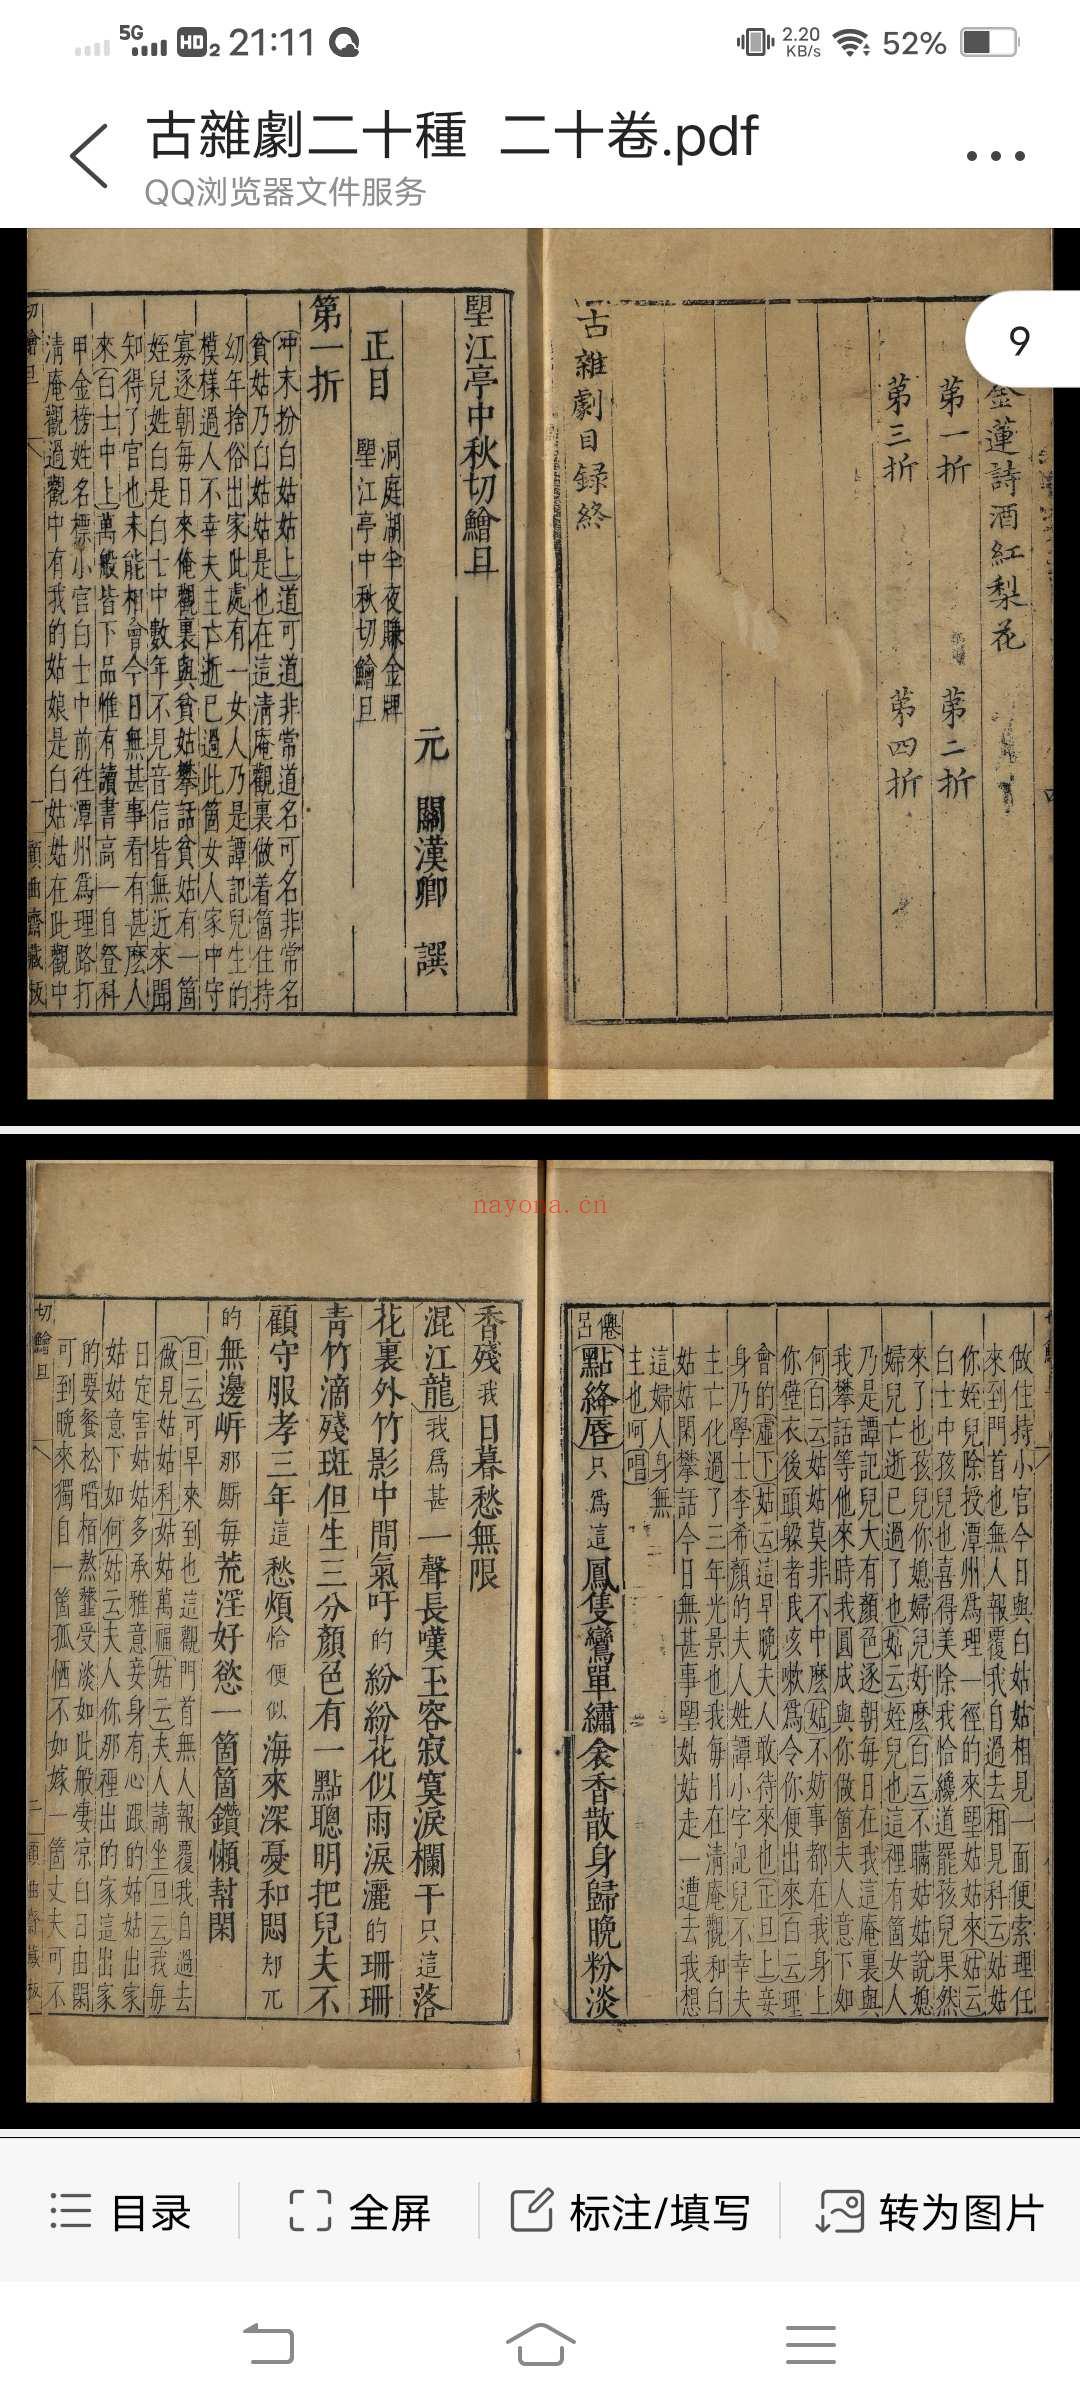 5G
HD 2 21:11
2.20 KB/s
52%
古雜劇二十種 二十卷.pdf
QQ浏览器文件服务
9
金蓮詩酒紅梨花
第一折 第二折
第三折 第四折
古雜劇目録終
望江亭中秋切鱠旦
元 關漢卿 譔
正目
洞庭湖半夜賺金牌
望江亭中秋切鱠旦
第一折
冲末扮白姑姑上道可道非常道名可名非常名
貧姑乃白姑姑是也在這清庵觀裏做着箇住持
幼年捨俗出家此處有一女人乃是譚記兒生的
模樣過人不幸夫主亡逝已過此箇女人家中守
寡逐朝每日來俺觀裏與貧姑攀話貧姑有一箇
姪兒姓白是白士中數年不見音信皆無近來聞
知得了官也未能相會今日無甚事看有甚麽人
來白士中上萬般皆下品惟有讀書高一自登科
甲金榜姓名標小官白士中前徃潭州爲理路打
清庵觀過觀中有我的姑娘是白姑姑在此觀中
切鱠旦
一
顧曲齋藏板
nayona.cn
做住持小官今日與白姑姑相見一面便索理任
來到門首也無人報覆我自過去相見科云姑姑
你姪兒除授潭州爲理一徑的來望姑姑來姑云
白士中孩兒也喜得美除我恰纔道罷孩兒果然
來了也孩兒你媳婦兒好麽白云不瞞姑姑說媳
婦兒亡逝已過了也姑云姪兒也這裡有箇女人
乃是譚記兒大有顏色逐朝每日在我這庵裏與
我攀話等他來時我圓成與你做箇夫人意下如
何白云姑姑莫非不中麽姑不妨事都在我身上
你壁衣後頭躲者我咳嗽爲令你便出來白云理
會的虛下姑云這早晚夫人敢待來也正旦上妾
身乃學士李希顏的夫人姓譚小字記兒不幸夫
主亡化過了三年光景也我每日在清庵觀和白
姑姑閑攀話今日無甚事望姑姑走一遭去我想
這婦人身無
主也呵唱
仙呂
點絳唇只爲這鳳隻鸞單繡衾香散身歸晚粉淡
香殘我日暮愁無限
混江龍我爲甚一聲長嘆玉容寂寞淚欄干只這落
花裏外竹影中間氣吁的紛紛花似雨淚灑的珊珊
青竹滴殘斑但生三分顏色有一點聰明把兒夫不
顧守服孝三年這愁煩恰便似海來深憂和悶却兀
的無邊岍那厮每荒淫好慾一箇箇鑽懶幫閑
旦云可早來到也這觀門首無人報覆我自過去
做見姑姑科姑姑萬福姑云夫人請坐旦云我每
日定害姑姑多承雅意妾身有心跟的姑姑出家
姑姑意下如何姑云夫人你那裡出的家這出家
的要餐松啗栢熬虀受淡如此般凄凉白日由閑
可到晚來獨自一箇孤恓不如嫁一箇丈夫可不
切鱠旦
二
顧曲齋藏板
目录
全屏
标注/填写
转为图片